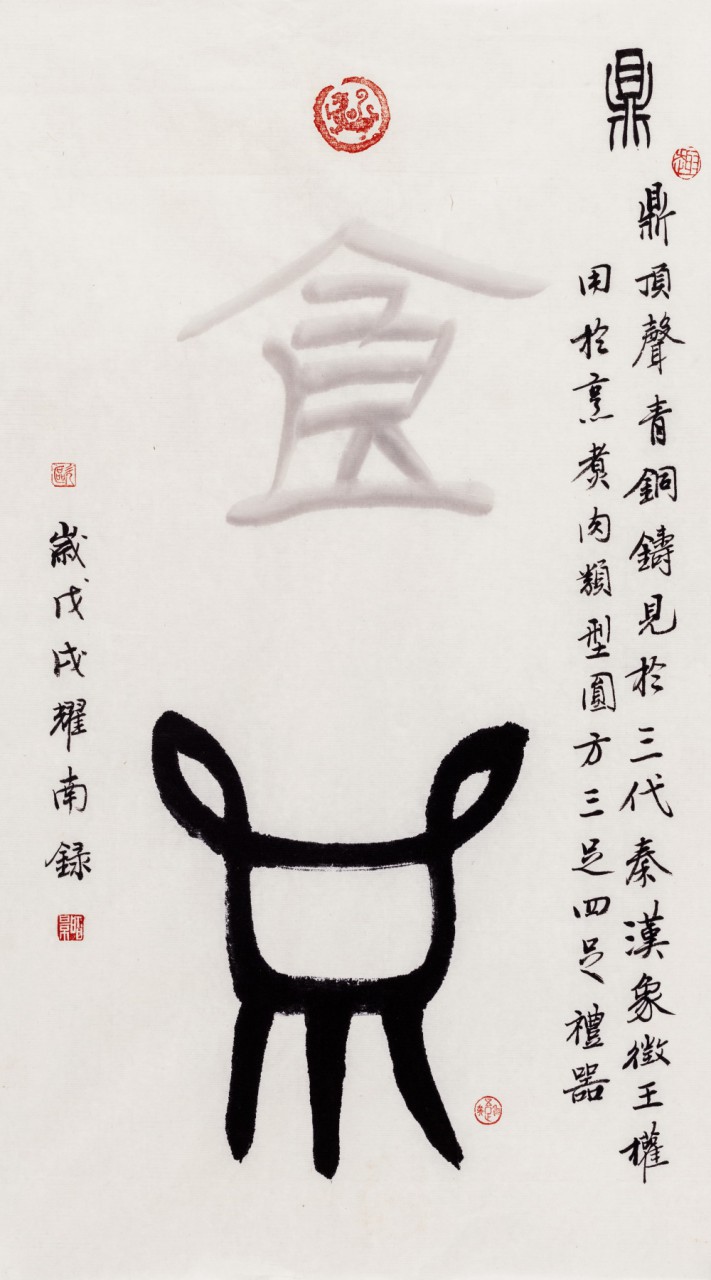 鼎
鼎頂聲青銅鑄見於三代秦漢象徵王權
用於烹煮肉類型圓方三足四足禮器
食
歲戊戌耀南録